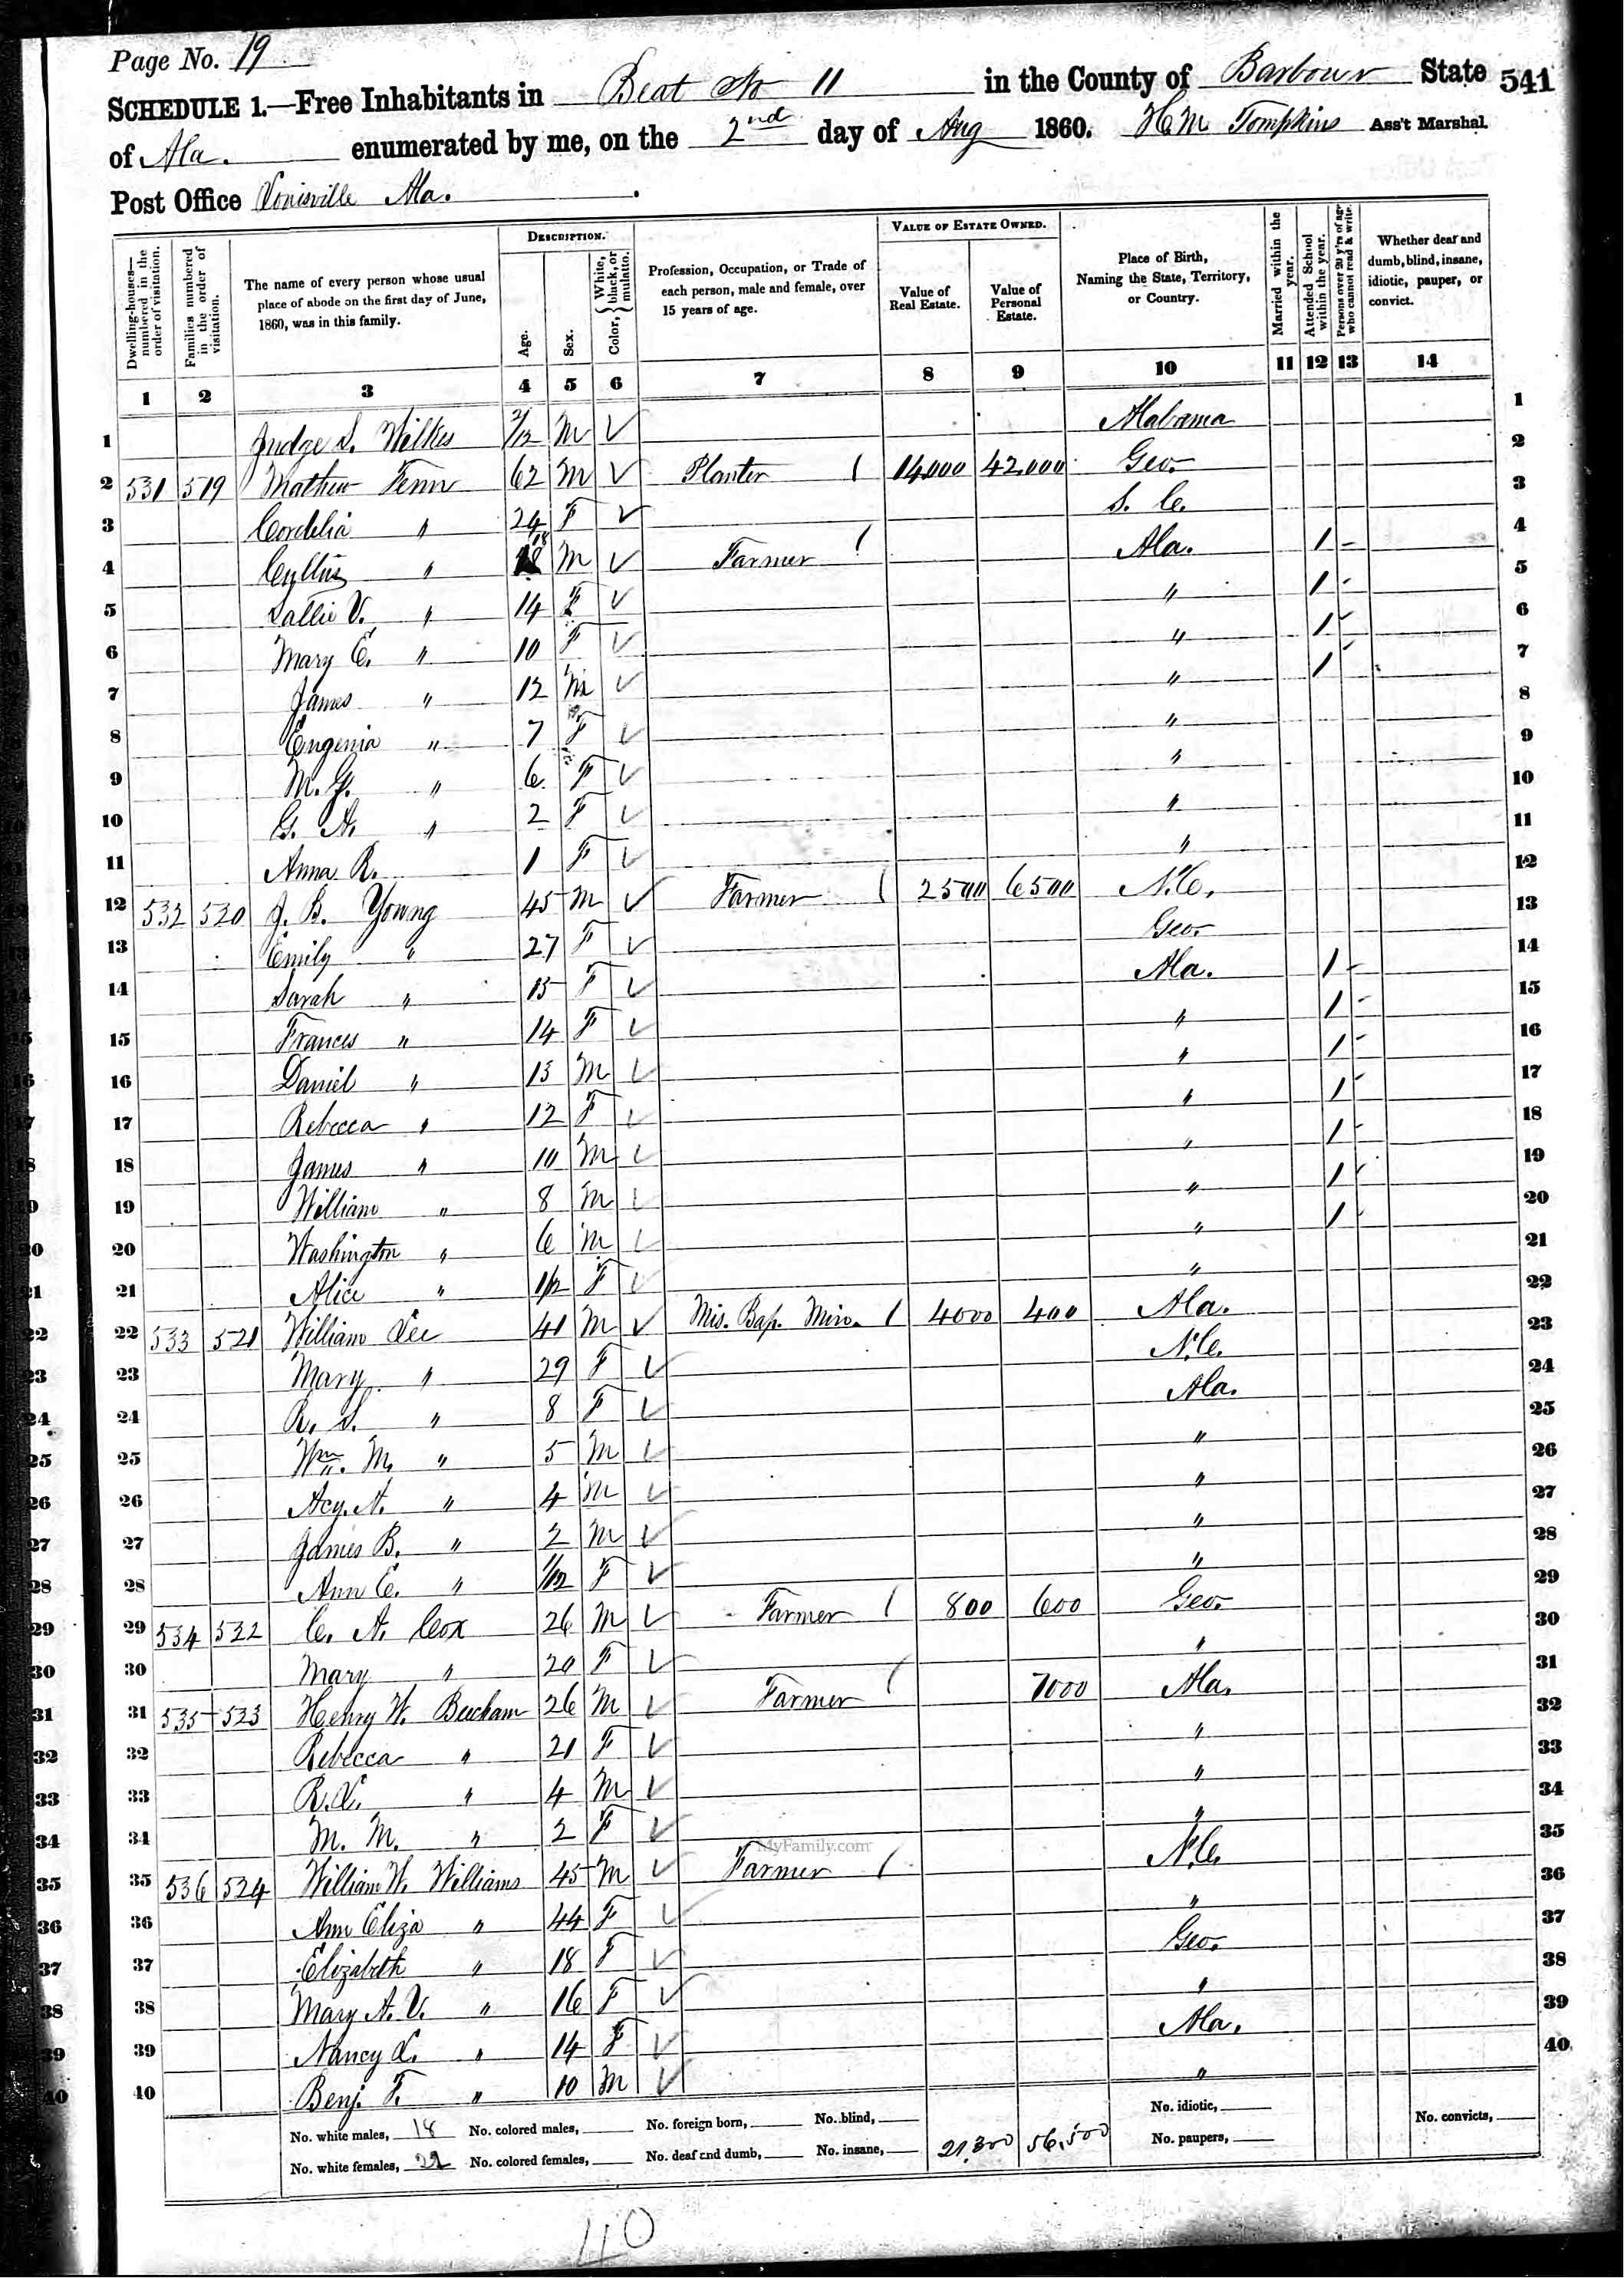 Page No. 19
SCHEDULE 1.—Free Inhabitants in Beat No 11 in the County of Barbour State 541
of Ala. enumerated by me, on the 2nd day of Aug 1860. H. M Tompkins Ass't Marshal.
Post Office Louisville Ala.
DESCRIPTION. VALUE OF ESTATE OWNED.
Dwelling-houses—numbered in the order of visitation. Families numbered in the order of visitation. The name of every person whose usual place of abode on the first day of June, 1860, was in this family. Age. Sex. Color, { White, black, or mulatto. Profession, Occupation, or Trade of each person, male and female, over 15 years of age. Value of Real Estate. Value of Personal Estate. Place of Birth, Naming the State, Territory, or Country. Married within the year. Attended School within the year. Persons over 20 y'rs of age who cannot read & write. Whether deaf and dumb, blind, insane, idiotic, pauper, or convict.
1 2 3 4 5 6 7 8 9 10 11 12 13 14
1 Judge S. Wilkes 2/12 M ✓ Alabama 1
2 531 519 Mathew Fenn 62 M ✓ Planter 14000 42,000 Geo. 2
3 Cordelia " 24 F ✓ S. C. 3
4 " 18 M ✓ Farmer Ala. 1 4
5 Sallie V. " 14 F ✓ " 1 5
6 Mary E. " 10 F ✓ " 1 6
7 James " 12 M ✓ " 1 7
8 Eugenia " 7 F ✓ " 8
9 M. G. " 6 F ✓ " 9
10 G. A. " 2 F ✓ " 10
11 Anna R. 1 F ✓ " 11
12 532 520 J. B. Young 45 M ✓ Farmer 2500 6500 N.C. 12
13 Emily " 27 F ✓ Geo. 13
14 Sarah " 15 F ✓ Ala. 1 14
15 Frances " 14 F ✓ " 1 15
16 Daniel " 13 M ✓ " 1 16
17 Rebecca " 12 F ✓ " 1 17
18 James " 10 M ✓ " 1 18
19 William " 8 M ✓ " 1 19
20 Washington " 6 M ✓ " 1 20
21 Alice " 1/12 F ✓ " 21
22 533 521 William Lee 41 M ✓ Mis. Bap. Min. 4000 400 Ala. 22
23 Mary " 29 F ✓ N.C. 23
24 R. S. " 8 F ✓ Ala. 24
25 Wm. M. " 5 M ✓ " 25
26 Acy. A. " 4 M ✓ " 26
27 James B. " 2 M ✓ " 27
28 Ann E. " 1/12 F ✓ " 28
29 534 522 C. A. Cox 26 M ✓ Farmer 800 600 Geo. 29
30 Mary " 20 F ✓ " 30
31 535 523 Henry W. Beecham 26 M ✓ Farmer 7000 Ala. 31
32 Rebecca " 21 F ✓ " 32
33 R. L. " 4 M ✓ " 33
34 M. M. " 2 F ✓ " 34
MyFamily.com
35 536 524 William W. Williams 45 M ✓ Farmer N.C. 35
36 Ann Eliza " 44 F ✓ " 36
37 Elizabeth " 18 F ✓ Geo. 37
38 Mary A. V. " 16 F ✓ " 38
39 Nancy L. " 14 F ✓ Ala. 39
40 Benj. F. " 10 M ✓ " 40
No. white males, 18 No. colored males, No. foreign born, No. blind, No. idiotic, No. convicts,
No. white females, 22 No. colored females, No. deaf and dumb, No. insane, 21,300 56,500 No. paupers,
40